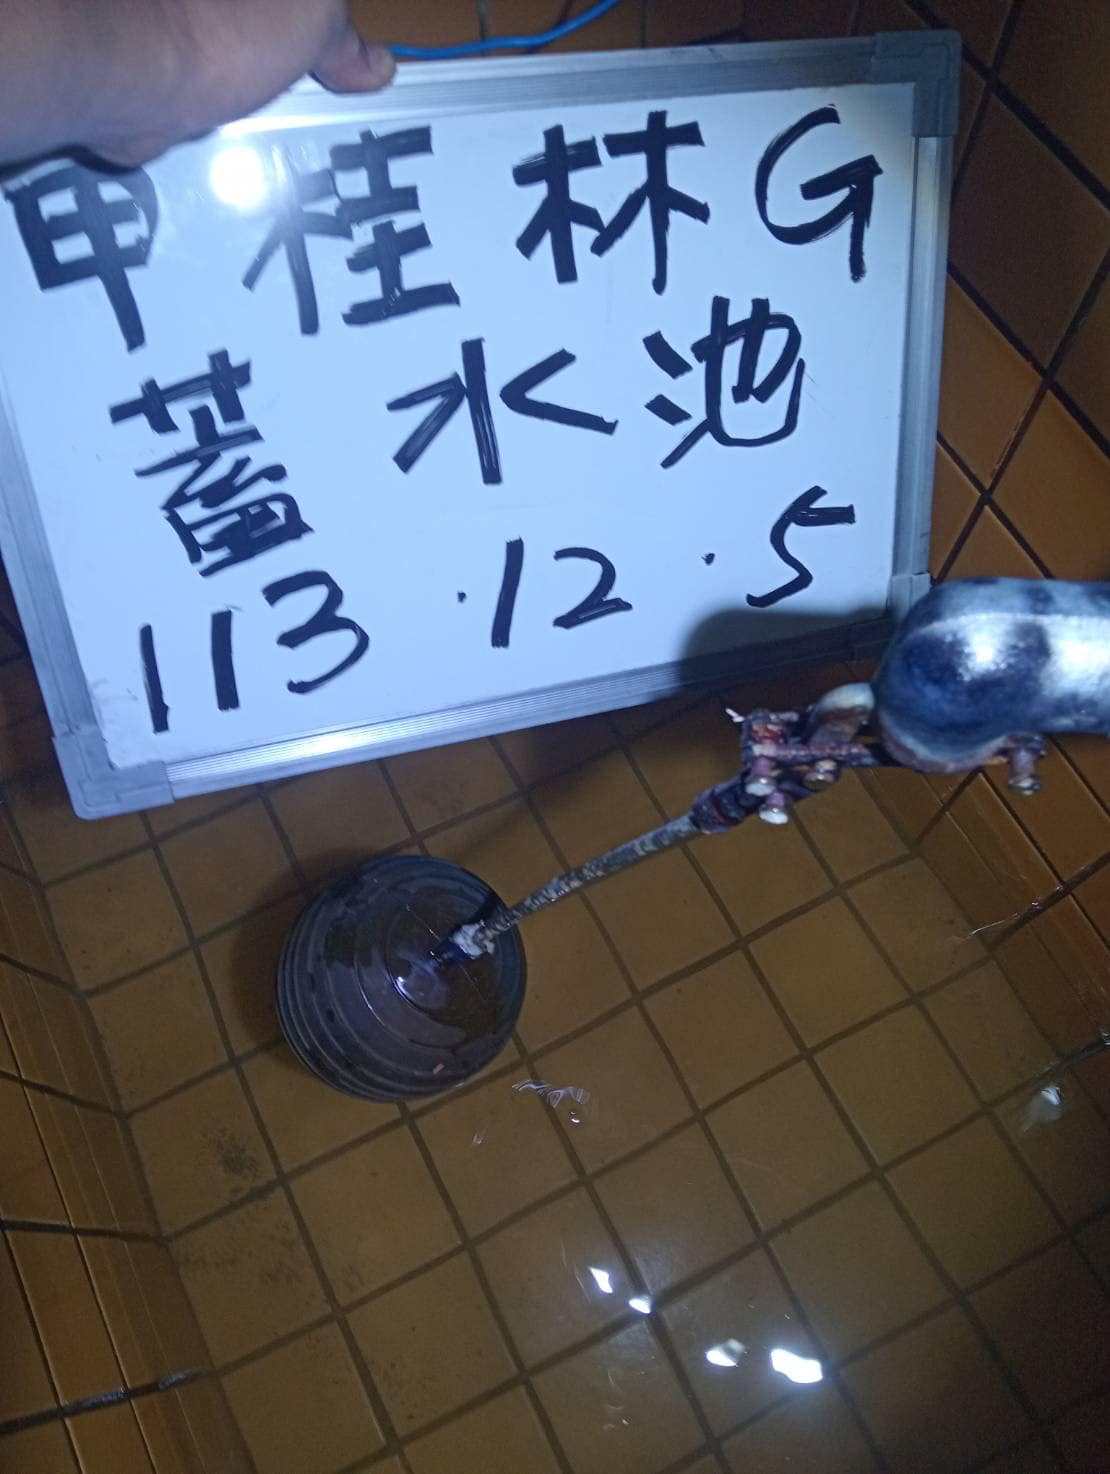 甲桂林G
蓄水池
113.12.5